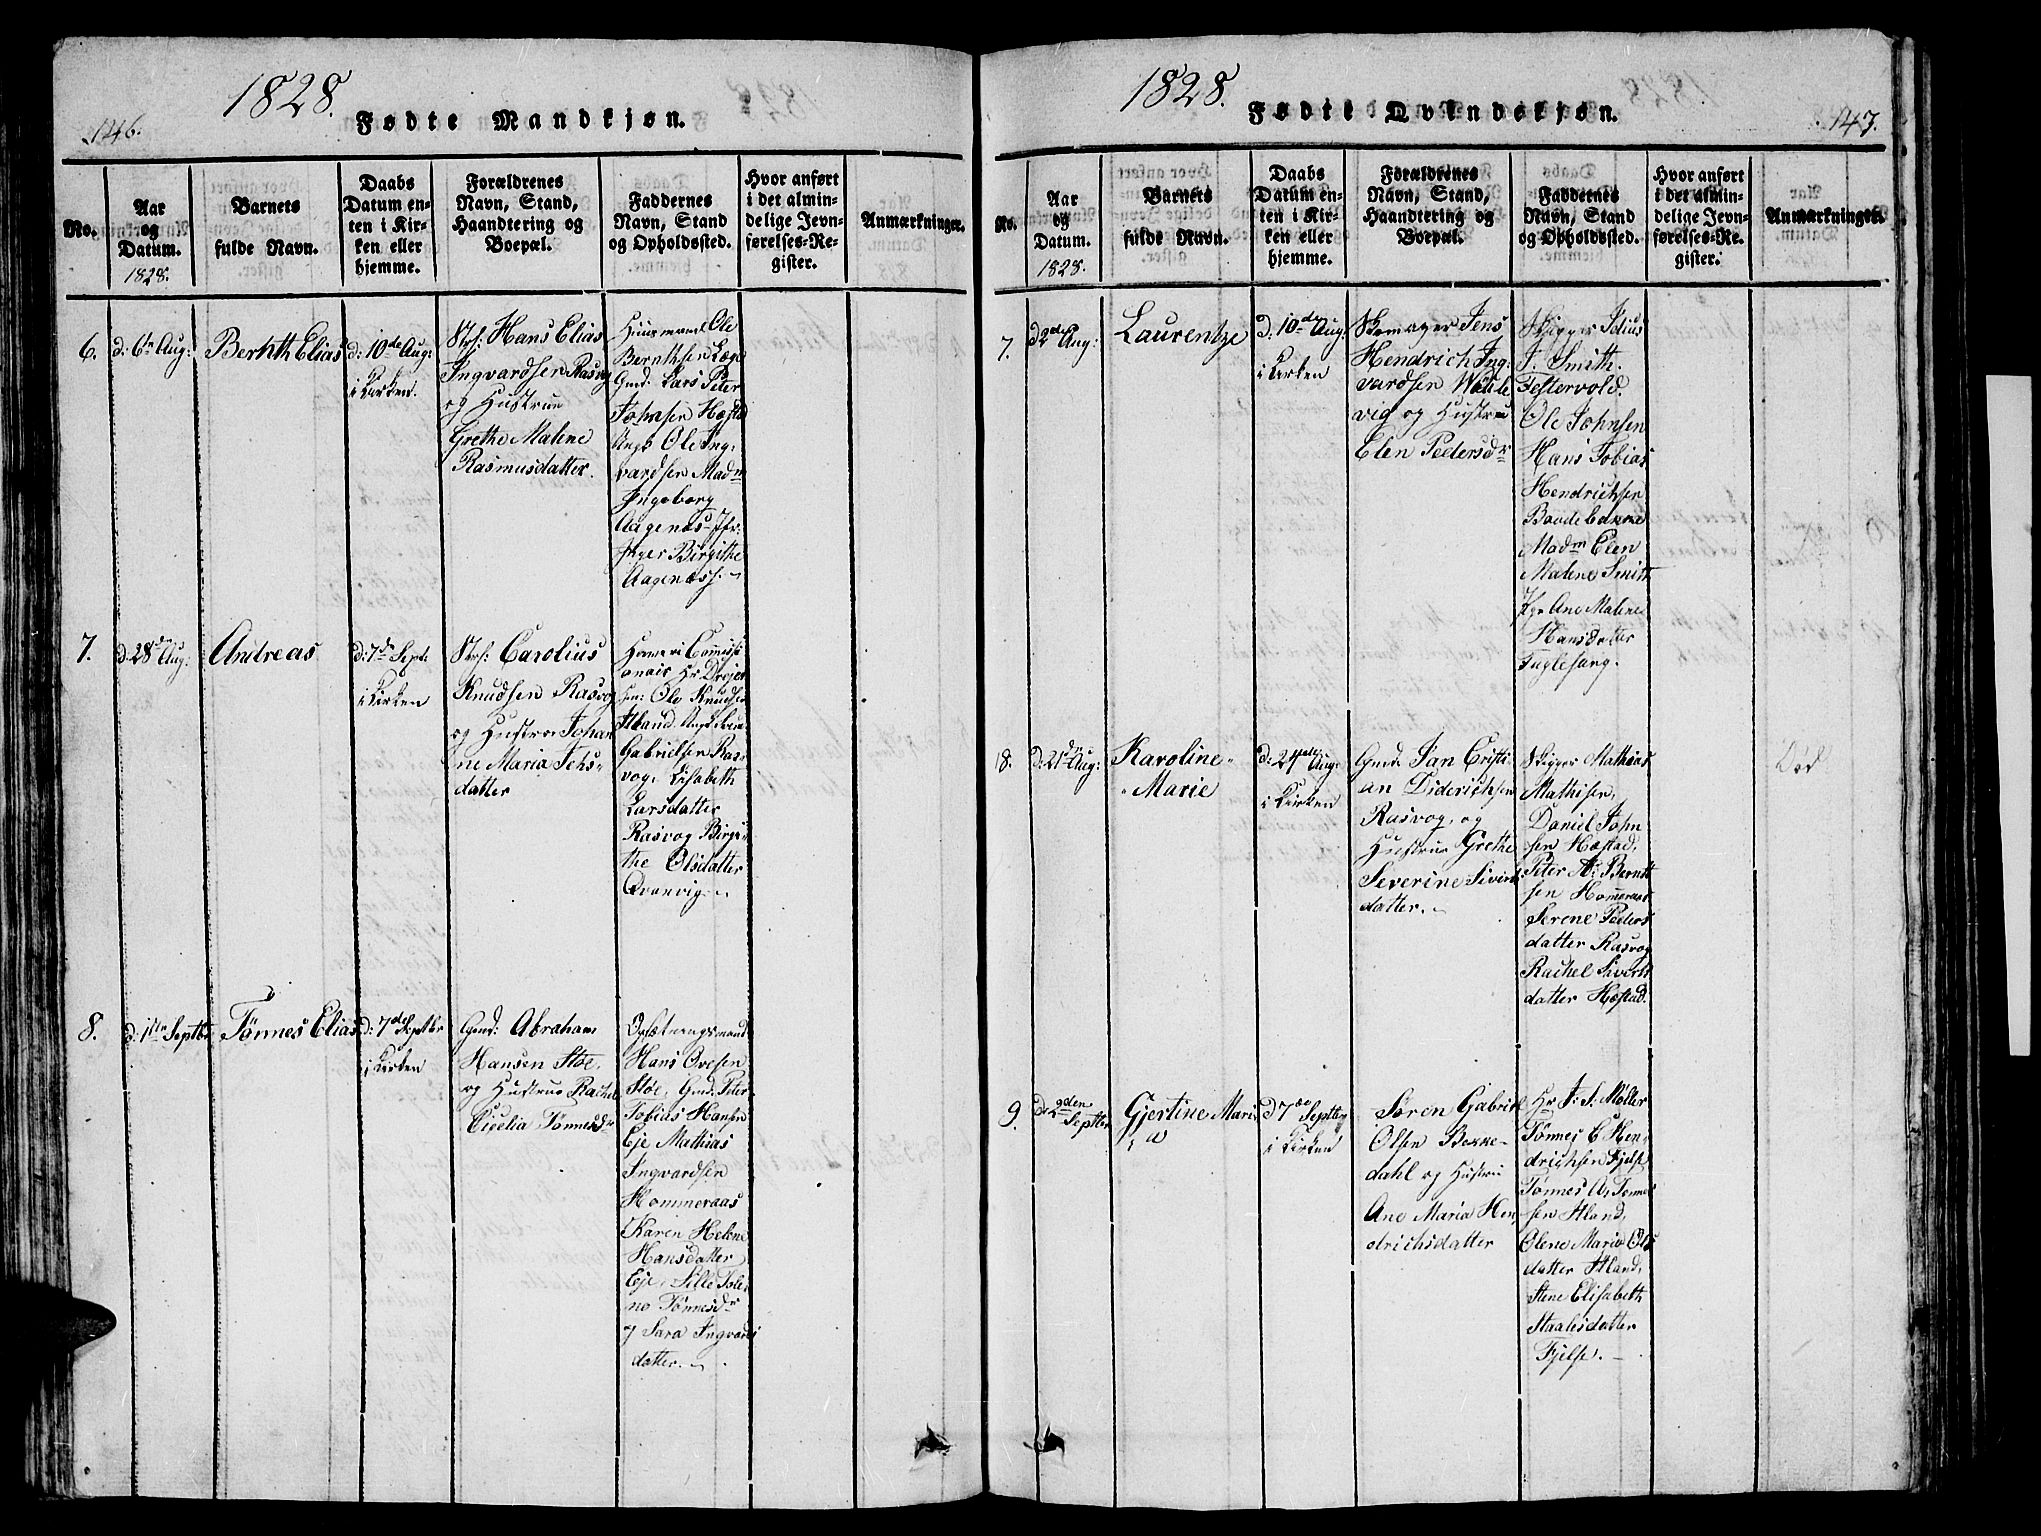 1828.
146.
Fødte Mandkjøn.
No.
Aar
og
Datum.
1828.
Barnets
fulde Navn.
Daabs
Datum en-
ten i Kir-
ken eller
hjemme.
Forældrenes
Navn, Stand,
Haandtering og
Boepæl.
Faddernes
Navn, Stand
og Opholdssted.
Hvor anført
i det almin-
delige Jevn-
førelses-Re-
gister.
Anmærkninger.
6.
d: 6te Aug:
Berhth Elias
d: 10de Aug:
i Kirken.
Hans Elias
Ingvardsen Rasvog
og Hustrue
Grethe Malene
Rasmusdatter.
Huusmand Ole
Berntsen Læge
Gmd: Lars Peter
Johnsen Hæstad
Ungk Ole Ing-
vardsen Madm
Ingeborg
Aagenæs
Birgithe
Aagenæs.
7.
d. 28de Aug:
Andreas
d: 7de Sept:
i Kirken
Carolius
Knudsen Rasvog
og Hustrue Johan
ne Maria Jens-
datter
Hr Drejer
Ole Knudsen
Aaland
Gabrielsen Ras-
vog, Lisabeth
Larsdatter
Rasvog Birgi-
the Olsdatter
Qvanvig
8.
d. 1ste Septbr
Tønnes Elias
d: 7de Septbr
i Kirken
Gmd: Abraham
Hansen Støe,
og Hustrue Rachel
Cicelia Tønnesdr
Opsætningsmand
Hans Ovesen
Støe, Gmd: Peter
Tobias Hansen
Eje Mathias
Ingvardsen
Hommeraas
Karen Helene
Hansdatter
Eje, Sille Tole-
ne Tønnesdr
og Sara Ingvards
datter.
1828.
Fødte Qvindekjøn.
147.
No.
Aar
og
Datum.
1828.
Barnets
fulde Navn.
Daabs
Datum en-
ten i Kir-
ken eller
hjemme.
Forældrenes
Navn, Stand,
Haandtering og
Boepæl.
Faddernes
Navn, Stand
og Opholdssted.
Hvor anført
i det almin-
delige Jevn-
førelses-Re-
gister.
Anmærkninger.
7.
d 2de Aug:
Laurentze
d: 10de Aug:
i Kirken
Skomager Jens
Hendrich Ing-
vardsen
vig og Hustrue
Elen Pedersdr
Skipper Julius
J. Smith.
Festervold.
Ole Johnsen
Hans Tobias
Hendrichsen
Baadebakke
Madm Elen
Malene Smith
Ane Malene
Hansdatter
Fuglesang.
8.
d: 21de Aug:
Karoline
Marie
d: 24de Aug:
i Kirken
Gmd: Jan Cristi-
an Diderichsen
Rasvog, og
Hustrue Grethe
Severine Sivert
datter.
Skipper Mathias
Mathisen,
Daniel John
sen Hæstad,
Peter A: Bernt
sen Homeraas
Serene Peders
datter Rasvog
Rachel Siverts
datter Hæstad.
Død
9.
d: 2den
Septbr
Gjertine Mari-
a
d 7de Septbr
i Kirken
Søren Gabriel
Olsen Bække-
dahl og Hustrue
Ane Maria Hen-
drichsdatter
Hr J: S: Møller
Tønnes C Hen-
drichsen Fjelse
Tønnes A: Tønnes
sen Aaland,
Olene Maria Ols
datter Aaland,
Stene Elisabeth
Staalesdatter
Fjelse.